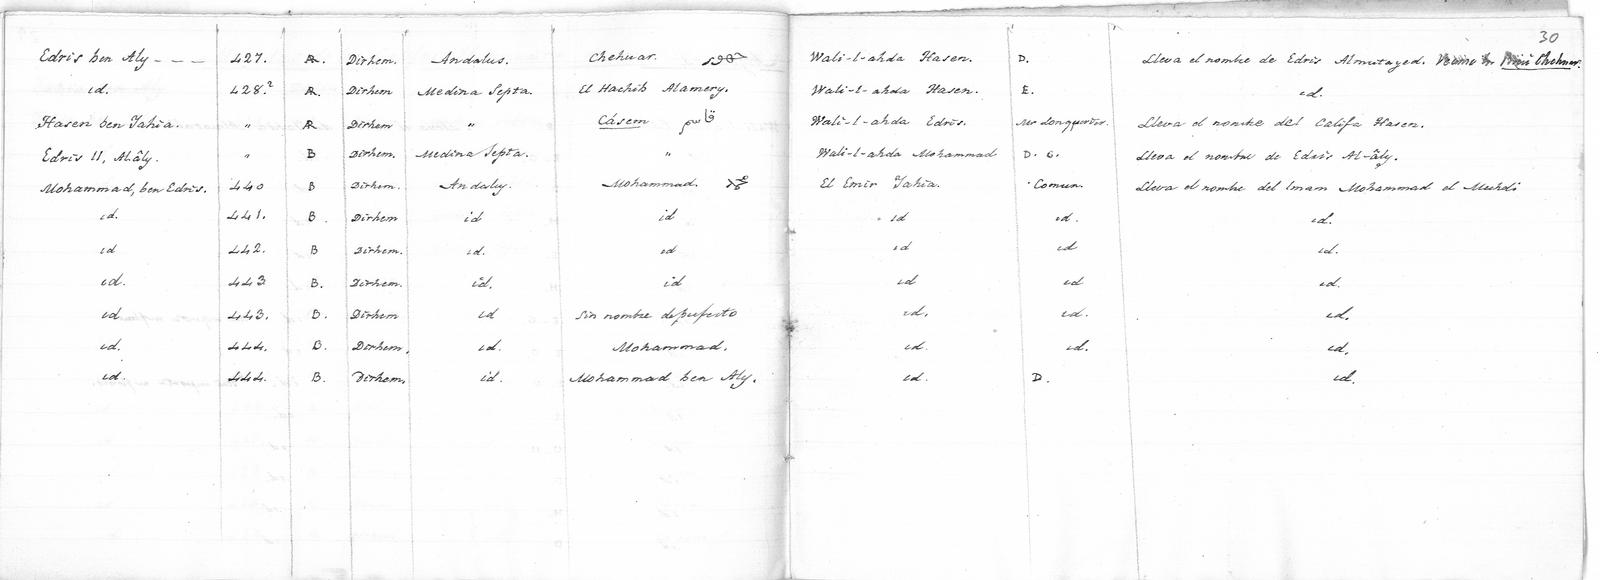 30
Edris ben Aly - - - 427. R. Dirhem. Andalus. Chehuar. Wali-l-ahda Hasen. D. Lleva el nombre de Edris Almutayed. Chehuar.
id. 428.² R. Dirhem Medina Septa. El Hachib Alamery. Wali-l-ahda Hasen. E. id.
Hasen ben Iahia. " R Dirhem " Cásem قاسم Wali-l-ahda Edris. Mr Longperier. Lleva el nombre del Califa Hasen.
Edris II, Alâly. " B Dirhem. Medina Septa. " Wali-l-ahda Mohammad D. C. Lleva el nombre de Edris Al-âly.
Mohammad, ben Edris. 440 B Dirhem. Andalus. Mohammad. El Emir Iahia. Comun. Lleva el nombre del Imam Mohammad el Mechdi
id. 441. B. Dirhem id id id id. id.
id 442. B Dirhem. id. id id id id.
id. 443 B. Dirhem. id. id id id id.
id 443. B. Dirhem id Sin nombre de prefecto id. id. id.
id. 444. B. Dirhem. id. Mohammad. id. id. id.
id. 444. B. Dirhem. id. Mohammad ben Aly. id. D. id.